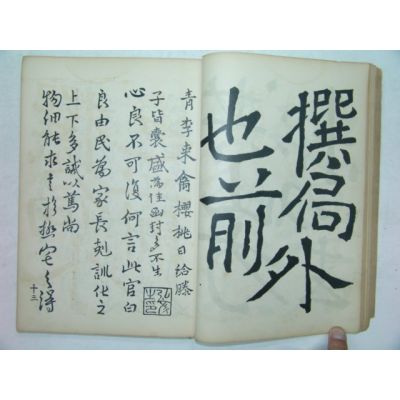 撰局外
也前
青李来禽櫻桃日給滕
子皆囊盛為佳函封多不生
心良不可復何言此官白
良由民為家長剋訓化之
上下多誠以篤尚
物細能求之於
十三